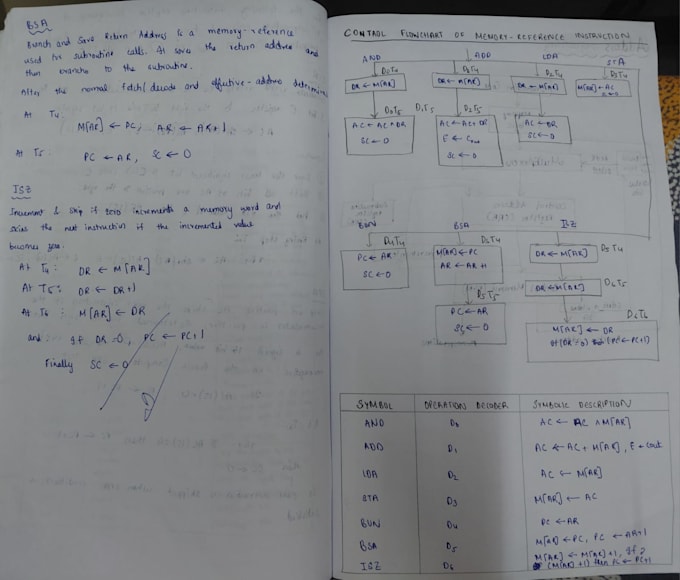 BSA
Branch and Save Return Address is a memory-reference
used for subroutine calls. It saves the return address and
then branches to the subroutine.
After the normal fetch/decode and effective-address
At T4:
M[AR] ← PC, AR ← AR+1
At T5:
PC ← AR, SC ← 0
ISZ
Increment & skip if zero increments a memory word and
the next instruction if the incremented value
becomes zero.
At T4: DR ← M[AR]
At T5: DR ← DR+1
At T6: M[AR] ← DR
and if DR=0, PC ← PC+1
Finally SC ← 0
CONTROL FLOWCHART OF MEMORY-REFERENCE INSTRUCTION
AND ADD LDA STA
D0T4 D1T4 D2T4 D3T4
DR ← M[AR] DR ← M[AR] DR ← M[AR] M[AR] ← AC
SC ← 0
D0T5 D1T5 D2T5
AC ← AC ∧ DR AC ← AC + DR AC ← DR
SC ← 0 E ← Cout SC ← 0
SC ← 0
BUN BSA ISZ
D4T4 D5T4 D5T4
PC ← AR M[AR] ← PC DR ← M[AR]
SC ← 0 AR ← AR+1
D6T5
D5T5 DR ← M[AR]
PC ← AR D6T6
SC ← 0 M[AR] ← DR
if (DR=0) then (PC ← PC+1)
SYMBOL OPERATION DECODER SYMBOLIC DESCRIPTION
AND D0 AC ← AC ∧ M[AR]
ADD D1 AC ← AC + M[AR], E ← Cout
LDA D2 AC ← M[AR]
STA D3 M[AR] ← AC
BUN D4 PC ← AR
BSA D5 M[AR] ← PC, PC ← AR+1
ISZ D6 M[AR] ← M[AR]+1, if
(M[AR]+1) then PC ← PC+1